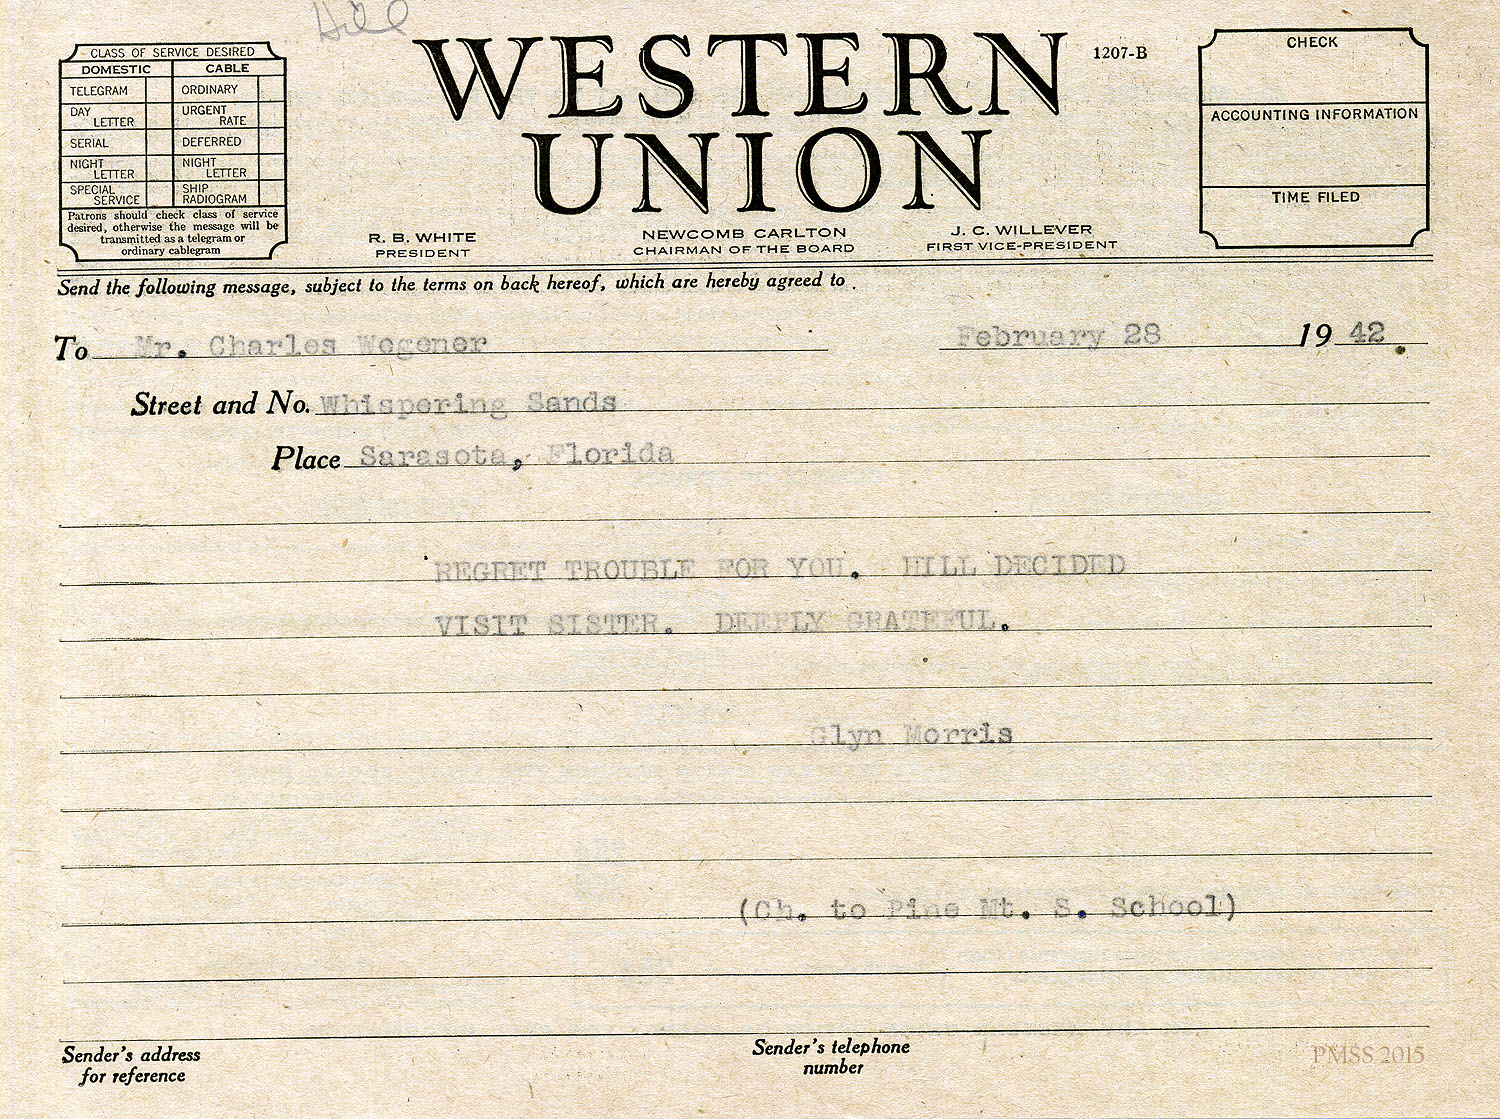 Hill
CLASS OF SERVICE DESIRED
DOMESTIC CABLE
TELEGRAM ORDINARY
DAY LETTER URGENT RATE
SERIAL DEFERRED
NIGHT LETTER NIGHT LETTER
SPECIAL SERVICE SHIP RADIOGRAM
Patrons should check class of service
desired, otherwise the message will be
transmitted as a telegram or
ordinary cablegram
WESTERN
UNION
1207-B
R. B. WHITE
PRESIDENT
NEWCOMB CARLTON
CHAIRMAN OF THE BOARD
J. C. WILLEVER
FIRST VICE-PRESIDENT
CHECK
ACCOUNTING INFORMATION
TIME FILED
Send the following message, subject to the terms on back hereof, which are hereby agreed to
To Mr. Charles Wegener February 28 19 42
Street and No. Whispering Sands
Place Sarasota, Florida
REGRET TROUBLE FOR YOU. HILL DECIDED
VISIT SISTER. DEEPLY GRATEFUL.
Glyn Morris
(Ch. to Pine Mt. S. School)
Sender's address
for reference
Sender's telephone
number
PMSS 2015